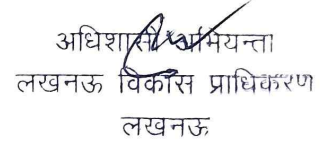 अधिशासी अभियन्ता
लखनऊ विकास प्राधिकरण
लखनऊ